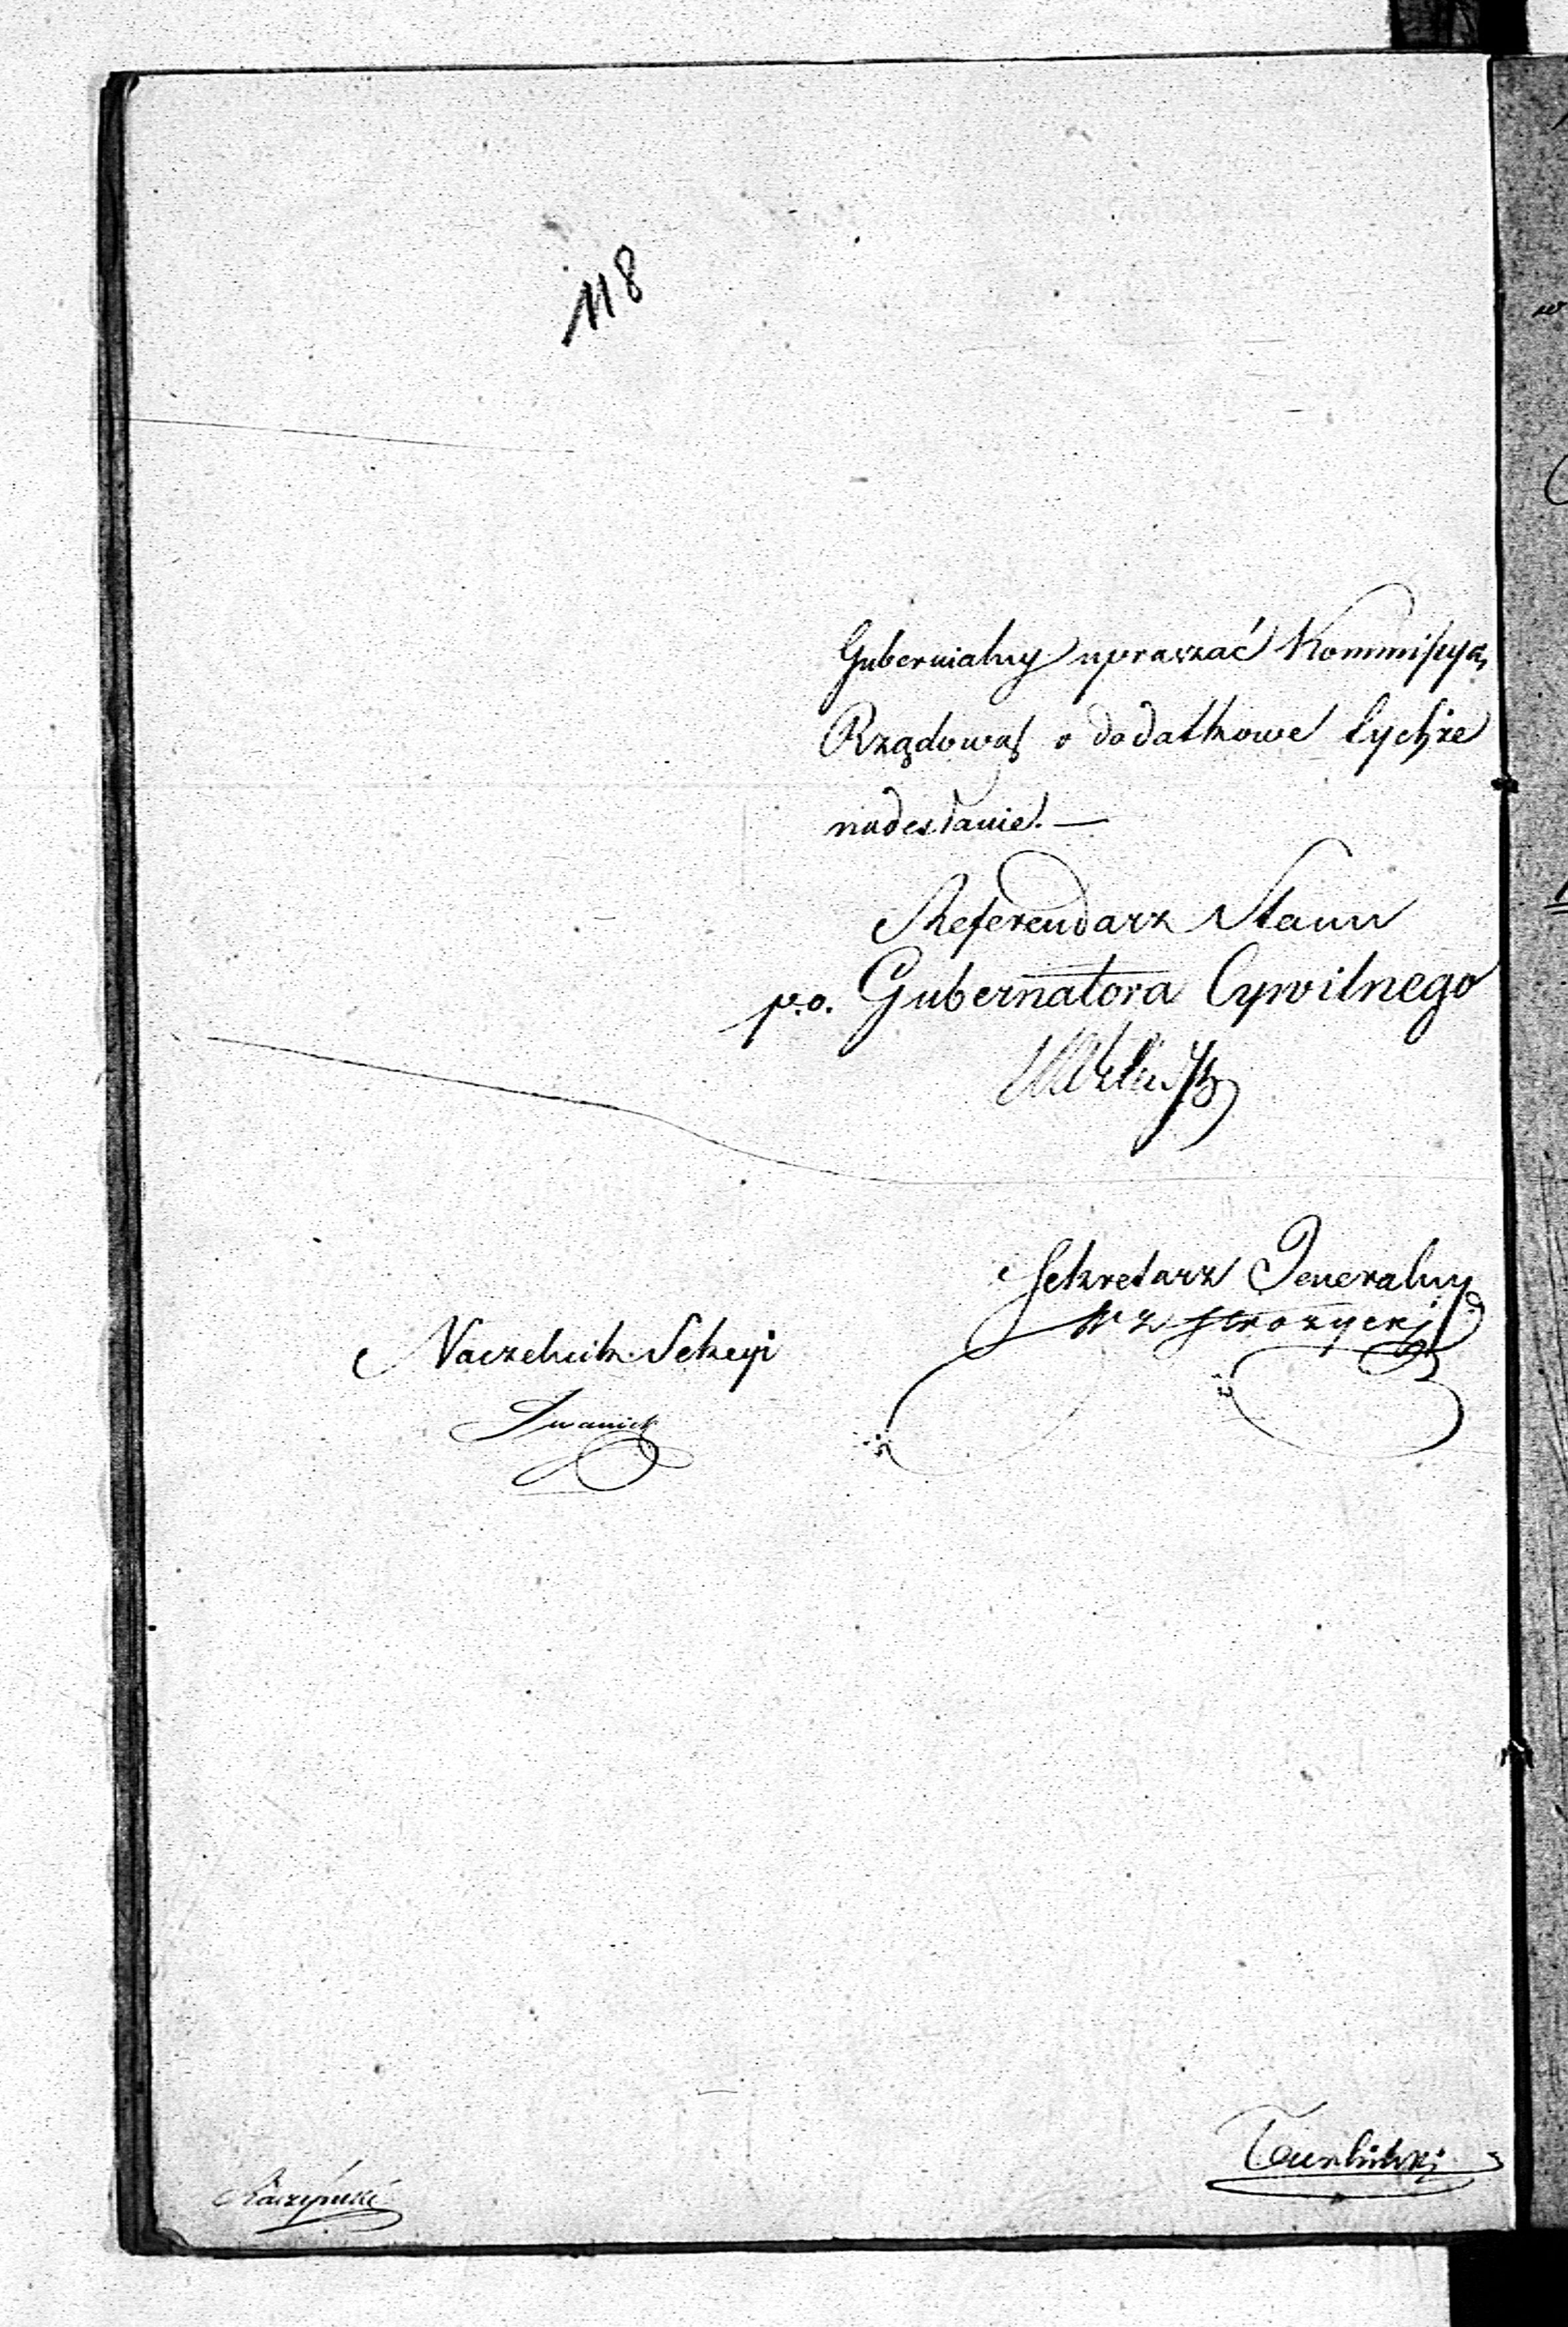 118
Gubernialny upraszać Kommissyą
Rządową o dodatkowe tychże
nadesłanie. —
Referendarz Stanu
p.o. Gubernatora Cywilnego
Sekretarz Jeneralny
Naczelnik Sekcyi
Raczyński